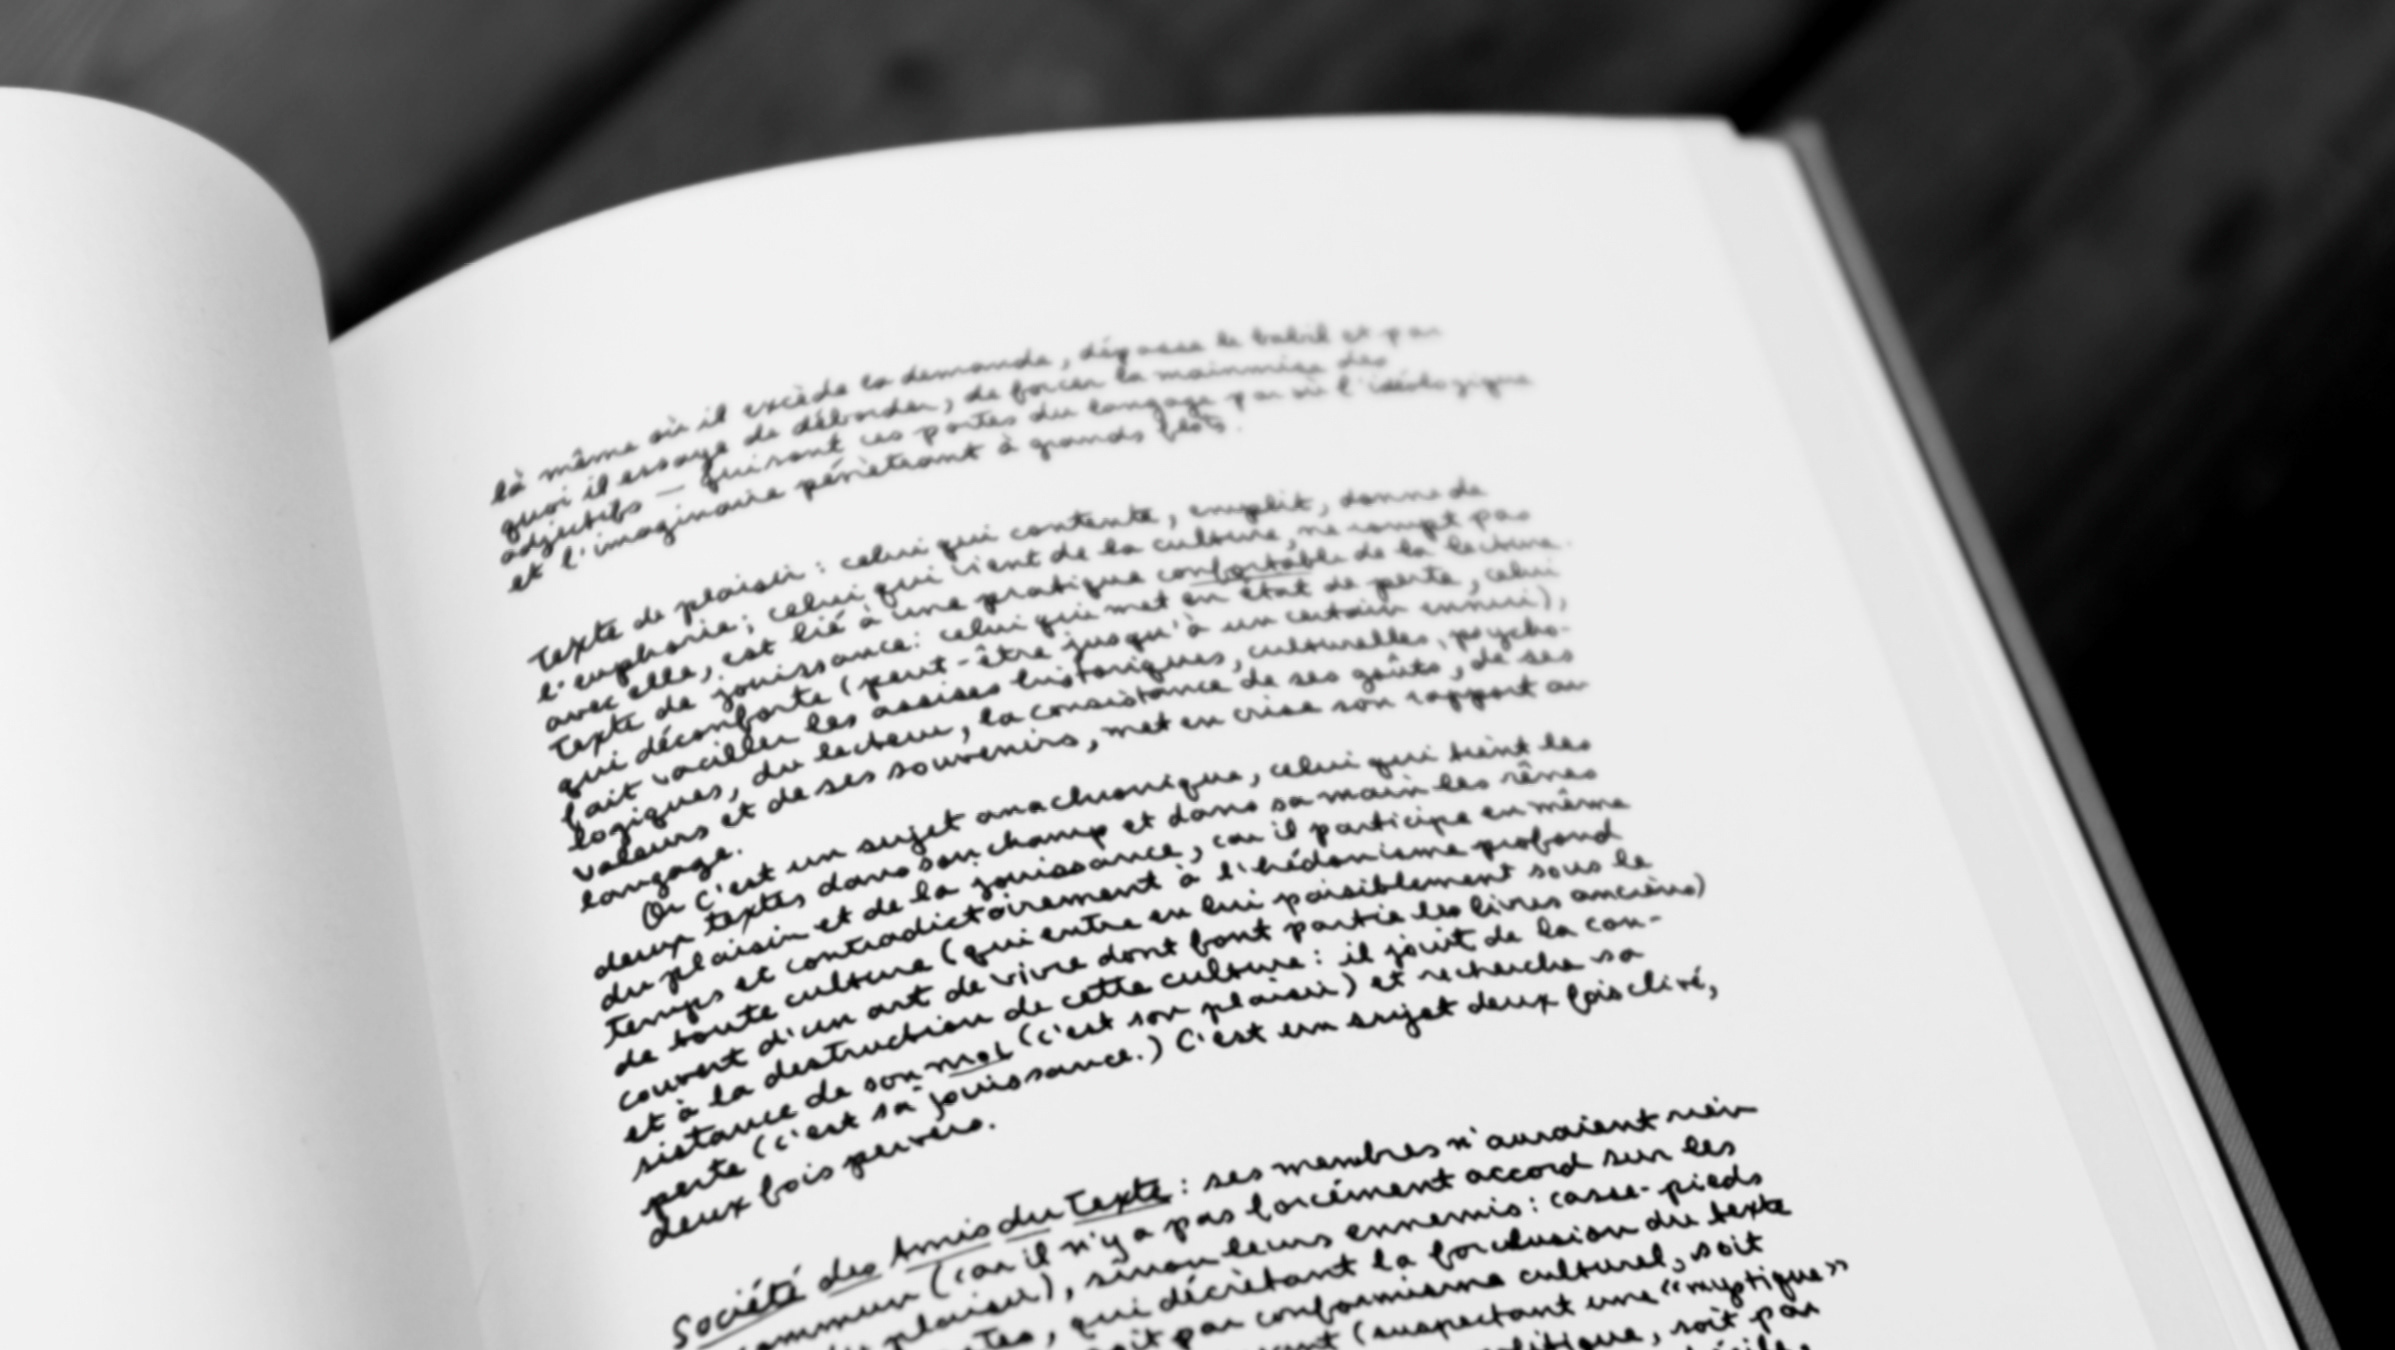 là même où il excède la demande, dépasse le babil et par
quoi il essaye de déborder, de forcer la mainmise des
adjectifs — qui sont ces portes du langage par où l'idéologique
et l'imaginaire pénètrent à grands flots.
Texte de plaisir : celui qui contente, emplit, donne de
l'euphorie ; celui qui vient de la culture, ne rompt pas
avec elle, est lié à une pratique confortable de la lecture.
Texte de jouissance : celui qui met en état de perte, celui
qui déconforte (peut-être jusqu'à un certain ennui),
fait vaciller les assises historiques, culturelles, psycho-
logiques, du lecteur, la consistance de ses goûts, de ses
valeurs et de ses souvenirs, met en crise son rapport au
langage.
Or c'est un sujet anachronique, celui qui tient les
deux textes dans son champ et dans sa main les rênes
du plaisir et de la jouissance, car il participe en même
temps et contradictoirement à l'hédonisme profond
de toute culture (qui entre en lui paisiblement sous le
couvert d'un art de vivre dont font partie les livres anciens)
et à la destruction de cette culture : il jouit de la con-
sistance de son moi (c'est son plaisir) et recherche sa
perte (c'est sa jouissance.) C'est un sujet deux fois clivé,
deux fois pervers.
Société des Amis du Texte : ses membres n'auraient rien
commun (car il n'y a pas forcément accord sur les
du plaisir), sinon leurs ennemis : casse-pieds
qui décrètent la forclusion du texte
soit par conformisme culturel, soit
(suspectant une « mystique »
soit par